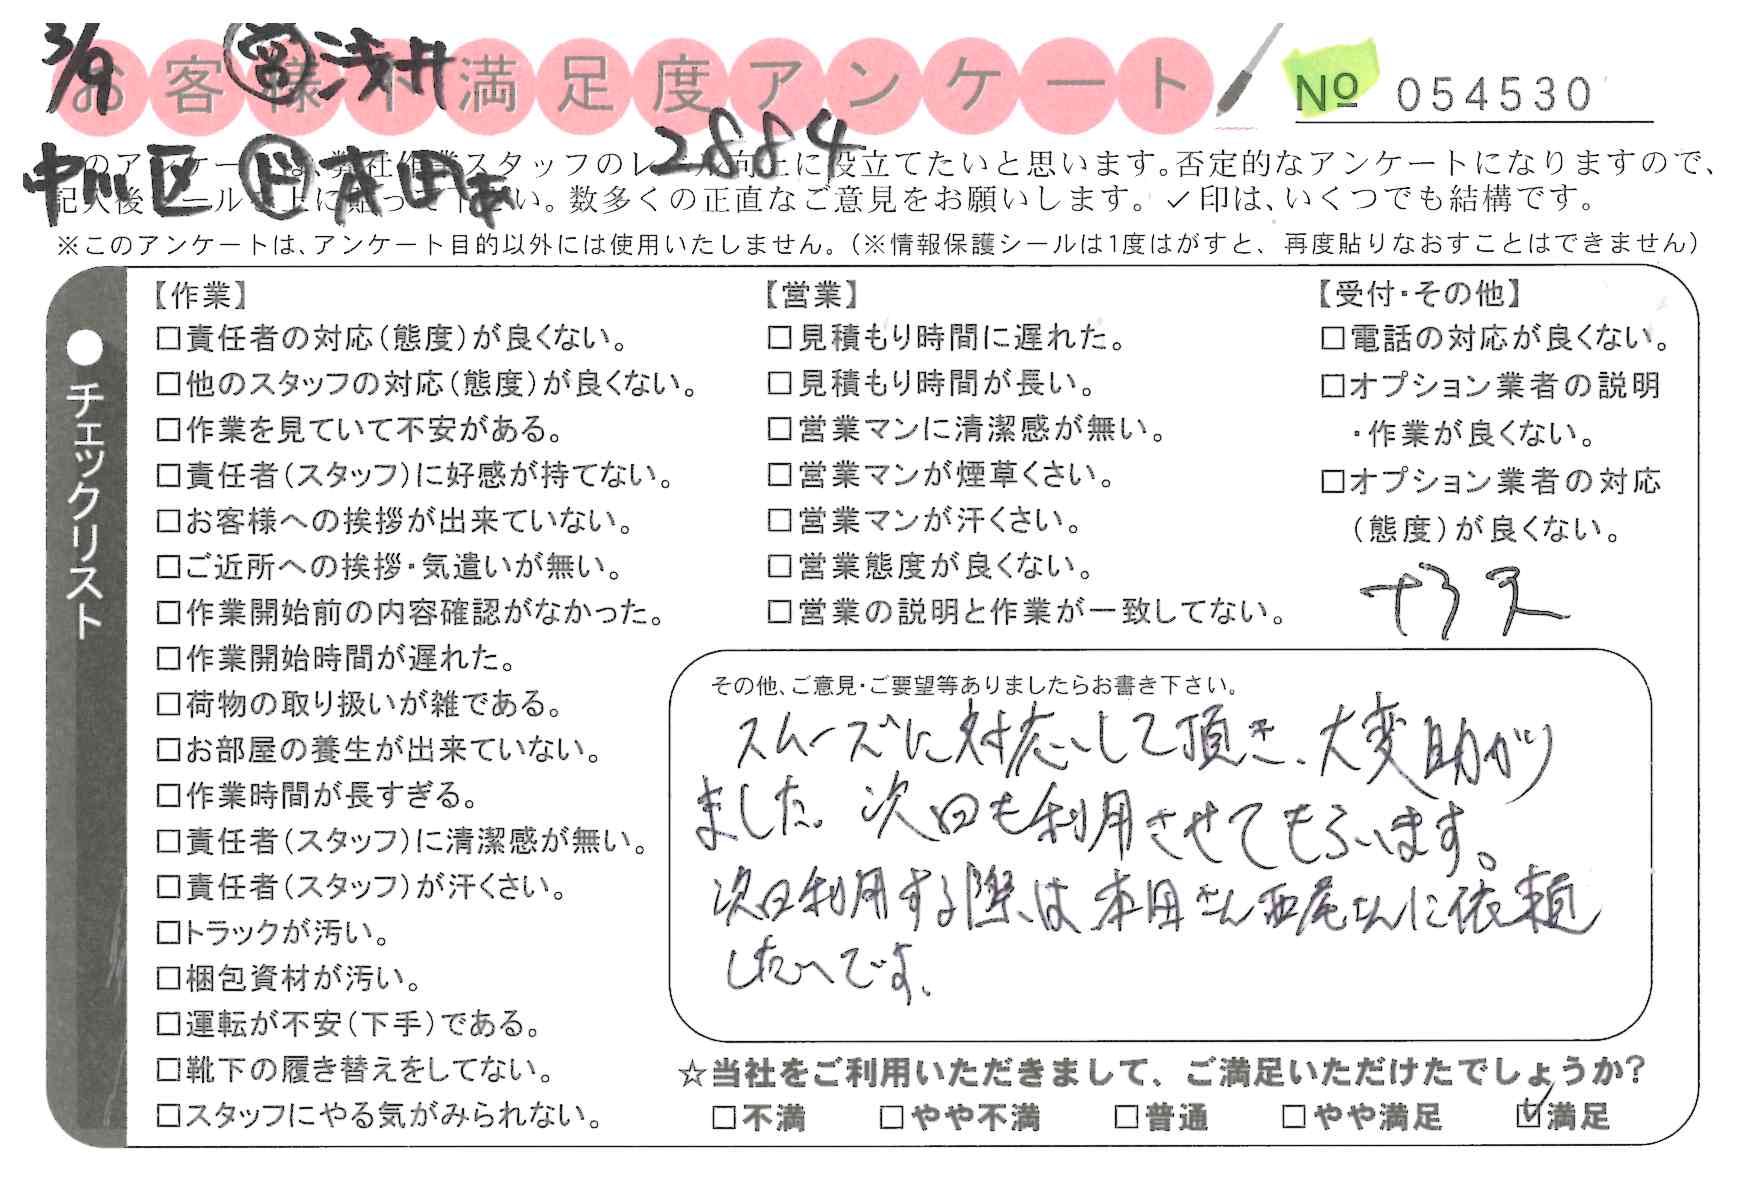 3/9 ㊂営 浅井
お客様不満足度アンケート
№ 054530
中川区 ド 本田 2884
このアンケートは、弊社作業スタッフのレベル向上に役立てたいと思います。否定的なアンケートになりますので、
記入後シールを上に貼って下さい。数多くの正直なご意見をお願いします。✓印は、いくつでも結構です。
※このアンケートは、アンケート目的以外には使用いたしません。（※情報保護シールは1度はがすと、再度貼りなおすことはできません）
●チェックリスト
【作業】
□責任者の対応（態度）が良くない。
□他のスタッフの対応（態度）が良くない。
□作業を見ていて不安がある。
□責任者（スタッフ）に好感が持てない。
□お客様への挨拶が出来ていない。
□ご近所への挨拶・気遣いが無い。
□作業開始前の内容確認がなかった。
□作業開始時間が遅れた。
□荷物の取り扱いが雑である。
□お部屋の養生が出来ていない。
□作業時間が長すぎる。
□責任者（スタッフ）に清潔感が無い。
□責任者（スタッフ）が汗くさい。
□トラックが汚い。
□梱包資材が汚い。
□運転が不安（下手）である。
□靴下の履き替えをしてない。
□スタッフにやる気がみられない。
【営業】
□見積もり時間に遅れた。
□見積もり時間が長い。
□営業マンに清潔感が無い。
□営業マンが煙草くさい。
□営業マンが汗くさい。
□営業態度が良くない。
□営業の説明と作業が一致してない。
【受付・その他】
□電話の対応が良くない。
□オプション業者の説明
・作業が良くない。
□オプション業者の対応
（態度）が良くない。
その他、ご意見・ご要望等ありましたらお書き下さい。
スムーズに対応して頂き、大変助かり
ました。次回も利用させてもらいます。
次回利用する際は本田さん西尾さんに依頼
したいです。
☆当社をご利用いただきまして、ご満足いただけたでしょうか?
□不満 □やや不満 □普通 □やや満足 ☑満足